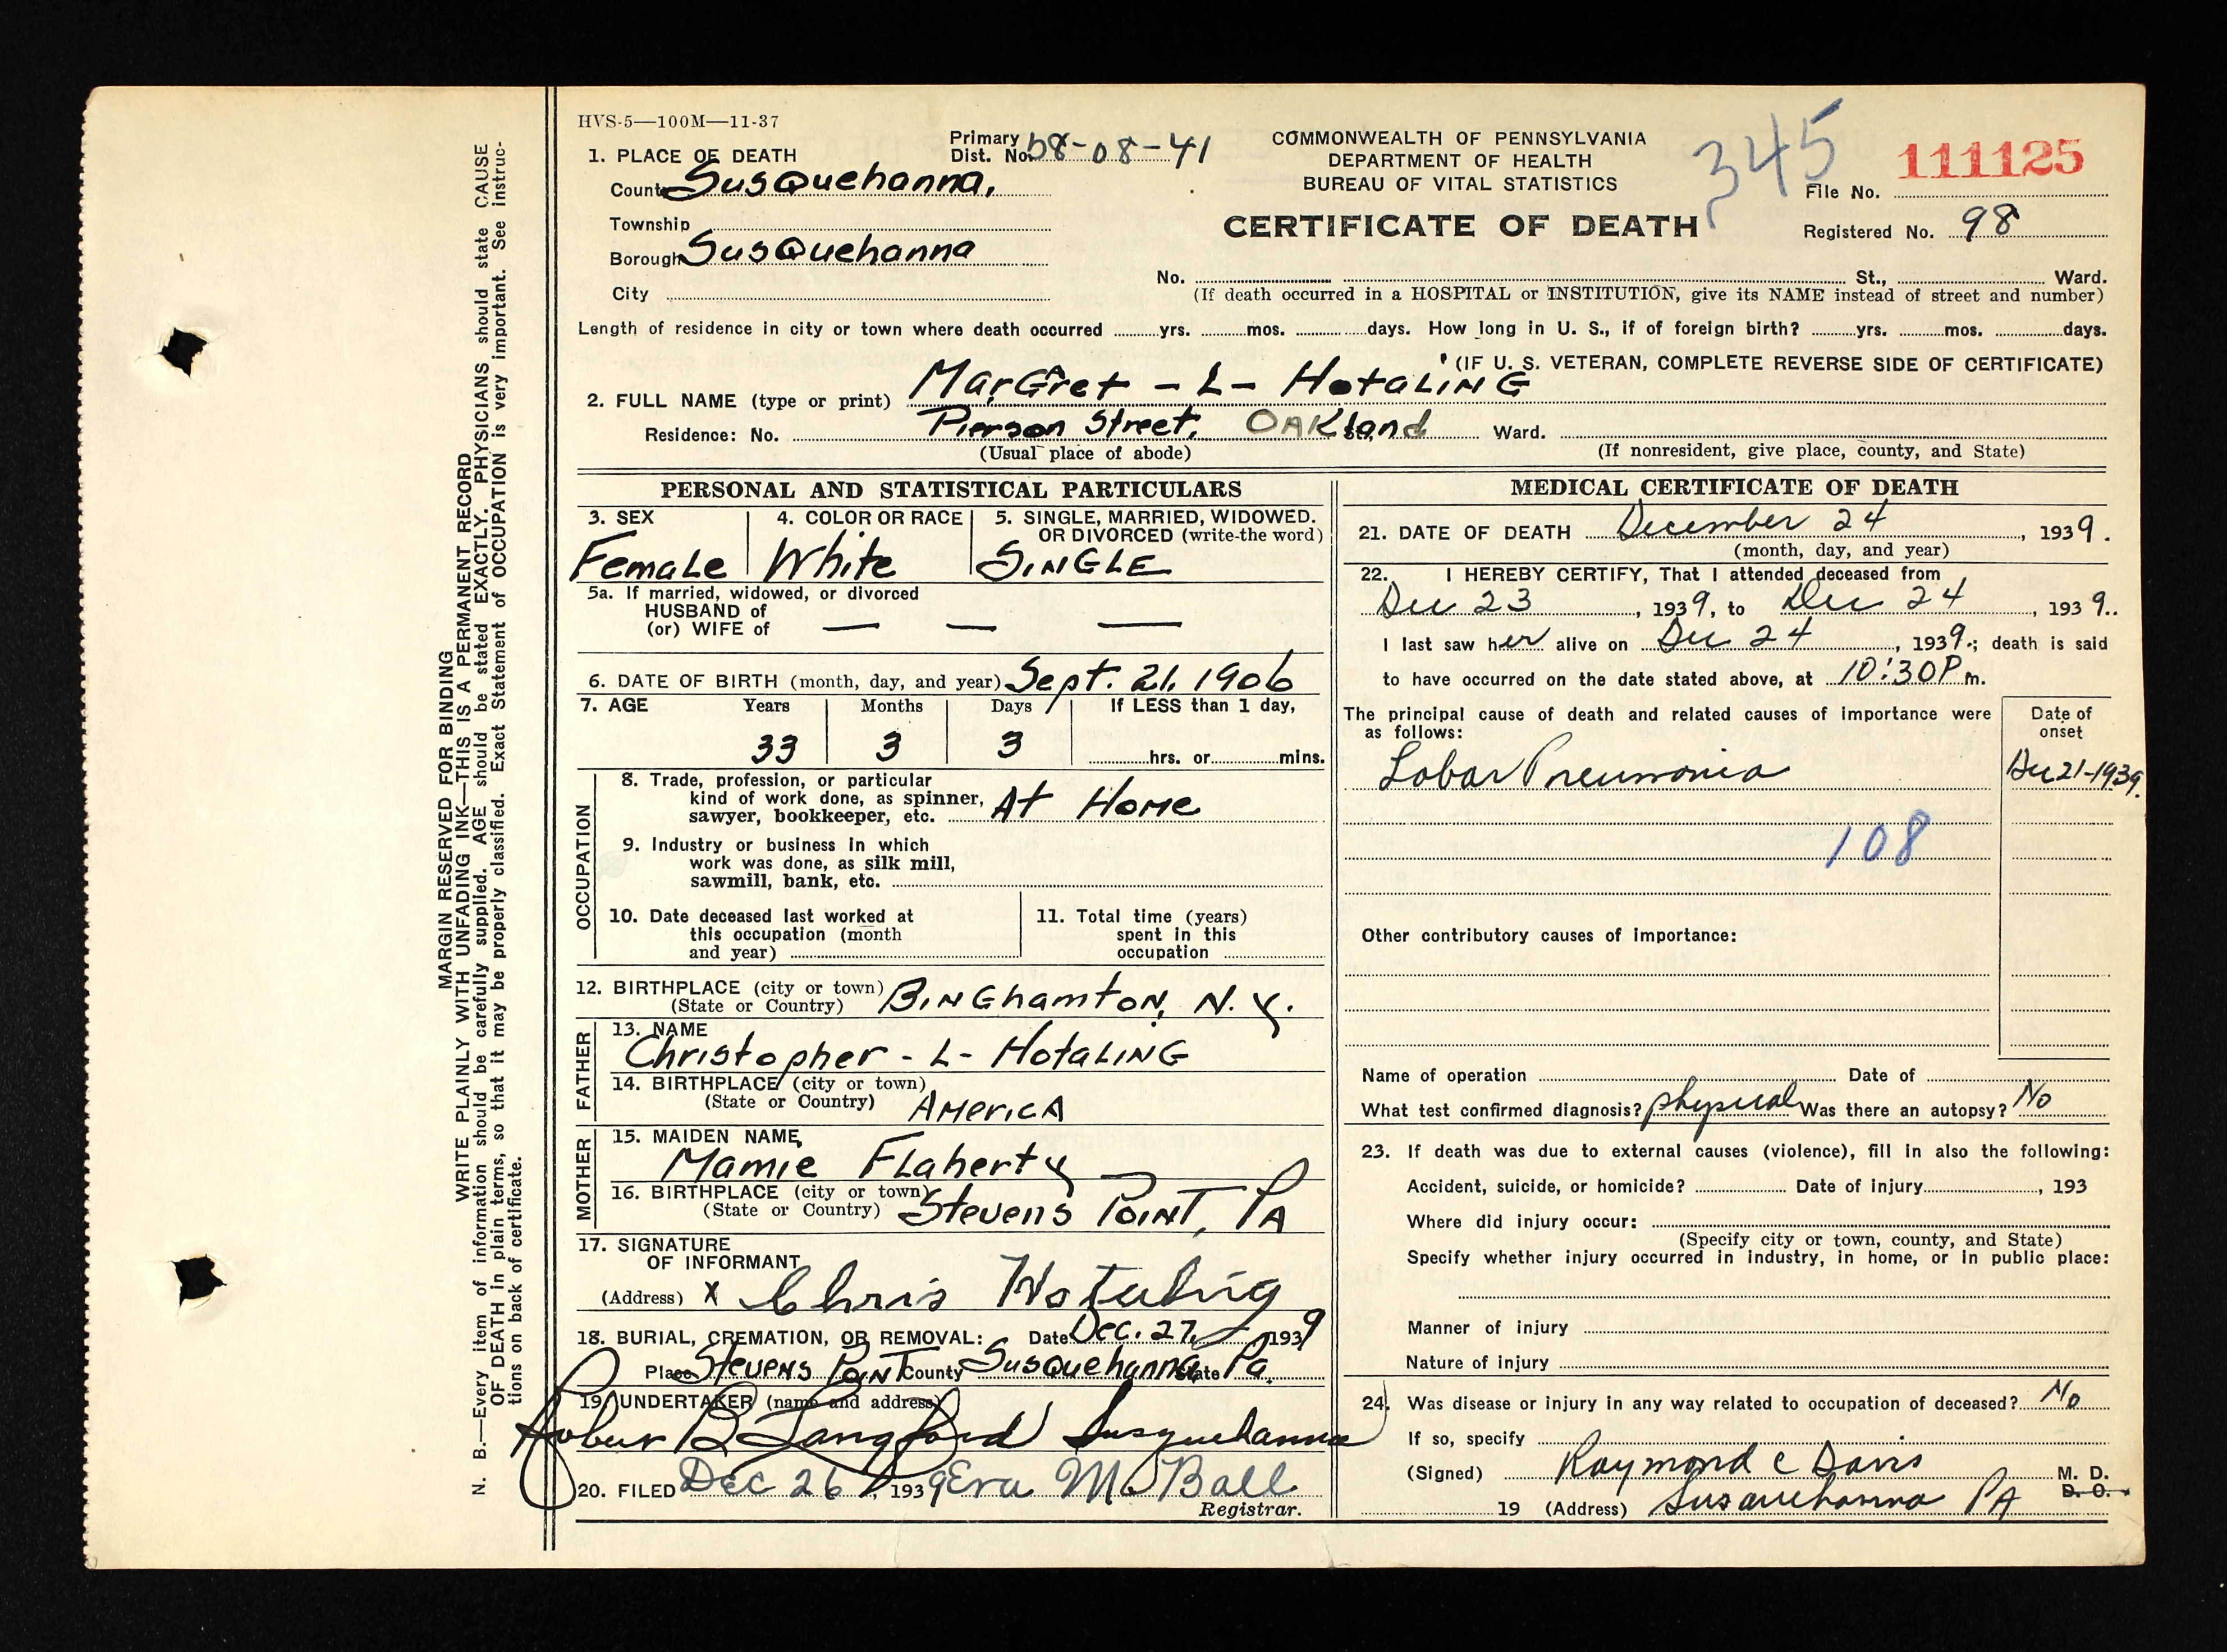 HVS-5—100M—11-37
1. PLACE OF DEATH
Primary Dist. No. 58-08-41
County Susquehanna,
Township
Borough Susquehanna
City
COMMONWEALTH OF PENNSYLVANIA
DEPARTMENT OF HEALTH
BUREAU OF VITAL STATISTICS
CERTIFICATE OF DEATH
345
File No. 111125
Registered No. 98
No. St., Ward.
(If death occurred in a HOSPITAL or INSTITUTION, give its NAME instead of street and number)
Length of residence in city or town where death occurred yrs. mos. days. How long in U. S., if of foreign birth? yrs. mos. days.
(IF U. S. VETERAN, COMPLETE REVERSE SIDE OF CERTIFICATE)
2. FULL NAME (type or print) MarGAret - L - HotaLING
Residence: No. Pierson Street, OAKland St. Ward.
(Usual place of abode) (If nonresident, give place, county, and State)
PERSONAL AND STATISTICAL PARTICULARS
3. SEX
Female
4. COLOR OR RACE
White
5. SINGLE, MARRIED, WIDOWED. OR DIVORCED (write the word)
SINGLE
5a. If married, widowed, or divorced
HUSBAND of
(or) WIFE of — — —
6. DATE OF BIRTH (month, day, and year) Sept. 21, 1906
7. AGE Years Months Days If LESS than 1 day,
33 3 3 hrs. or mins.
OCCUPATION
8. Trade, profession, or particular
kind of work done, as spinner,
sawyer, bookkeeper, etc. At Home
9. Industry or business in which
work was done, as silk mill,
sawmill, bank, etc.
10. Date deceased last worked at
this occupation (month
and year)
11. Total time (years)
spent in this
occupation
12. BIRTHPLACE (city or town)
(State or Country) BINGhamtoN, N. Y.
FATHER
13. NAME
Christopher - L - HotaLING
14. BIRTHPLACE (city or town)
(State or Country) AMericA
MOTHER
15. MAIDEN NAME
Mamie FLaherty
16. BIRTHPLACE (city or town)
(State or Country) Stevens Point, PA
17. SIGNATURE
OF INFORMANT
(Address) X Chris Hotaling
18. BURIAL, CREMATION, OR REMOVAL: Date Dec. 27, 1939
Place Stevens Point County Susquehanna State Pa.
19. UNDERTAKER (name and address)
B Langford Susquehanna
20. FILED Dec 26, 1939 Eva M. Ball
Registrar.
MEDICAL CERTIFICATE OF DEATH
21. DATE OF DEATH December 24, 1939.
(month, day, and year)
22. I HEREBY CERTIFY, That I attended deceased from
Dec 23, 1939, to Dec 24, 1939.
I last saw her alive on Dec 24, 1939; death is said
to have occurred on the date stated above, at 10:30 P m.
The principal cause of death and related causes of importance were
as follows:
Date of onset
Lobar Pneumonia Dec 21-1939.
108
Other contributory causes of importance:
Name of operation Date of
What test confirmed diagnosis? physical Was there an autopsy? No
23. If death was due to external causes (violence), fill in also the following:
Accident, suicide, or homicide? Date of injury , 193
Where did injury occur:
(Specify city or town, county, and State)
Specify whether injury occurred in industry, in home, or in public place:
Manner of injury
Nature of injury
24. Was disease or injury in any way related to occupation of deceased? No
If so, specify
(Signed) Raymond C Davis M. D.
D. O.
19 (Address) Susquehanna PA
MARGIN RESERVED FOR BINDING
WRITE PLAINLY WITH UNFADING INK—THIS IS A PERMANENT RECORD
N. B.—Every item of information should be carefully supplied. AGE should be stated EXACTLY. PHYSICIANS should state CAUSE
OF DEATH in plain terms, so that it may be properly classified. Exact Statement of OCCUPATION is very important. See instruc-
tions on back of certificate.